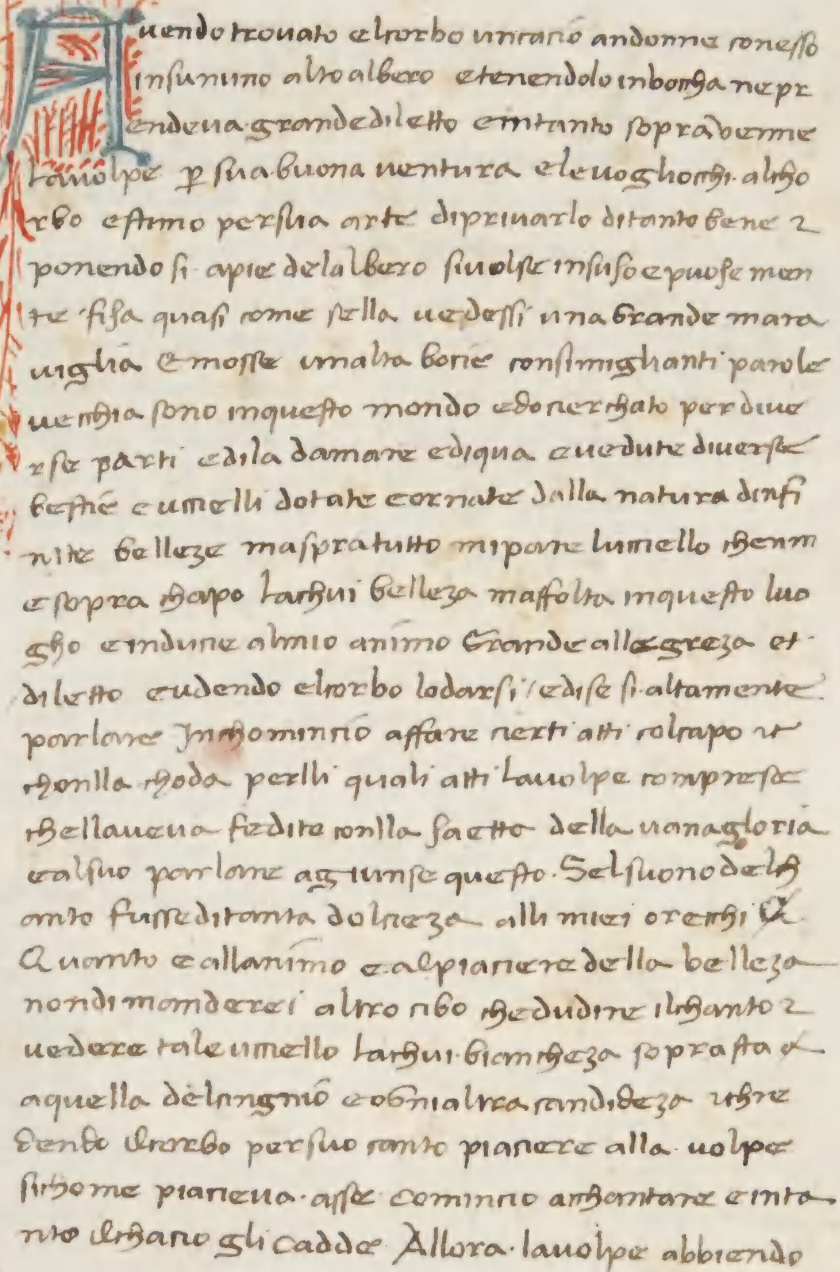 Avendo trovato elcorbo uncacio andonne conesso
insununo alto albero etenendolo inboccha nepr
endeva grandediletto eintanto sopravenne
lavolpe p sua buona ventura elevogliocchi alcho
rbo estimo persua arte diprivarlo ditanto bene 2
ponendosi apie delalbero sivolse insuso epuose men
te fisa quasi come sella vedessi una grande mara
viglia Emosse unalta bocie consimiglianti parole
vecchia sono inquesto mondo edocierchato perdive
rse parti edila damare ediqua evedute diverse
bestie eucielli dotate eornate dalla natura dinfi
nite belleze maspratutto mipare luciello chemm
esopra chapo lachui belleza maffolta inquesto luo
gho einducie almio animo Grande allegreza et
diletto eudendo elcorbo lodarsi / edise si altamente
parlare Inchomincio affare cierti atti colcapo et
chonlla choda perlli quali atti lavolpe comprese
chellaveva fedito conlla saetta della vanagloria
ealsuo parlare agiunse questo. Selsuono delch
anto fusseditanta dolcieza alli miei orecchi
Quanto eallanimo ealpiaciere della belleza
nondimanderei altro cibo chedudire ilchanto 2
vedere tale uciello lachui biancheza soprasta a
aquella delcingnio eognialtra candideza et chre
dendo ilcorbo persuo canto piaciere alla volpe
sichome piacieva asse comincio acchantare einta
nto ilchacio gli cadde Allora lavolpe abbiendo